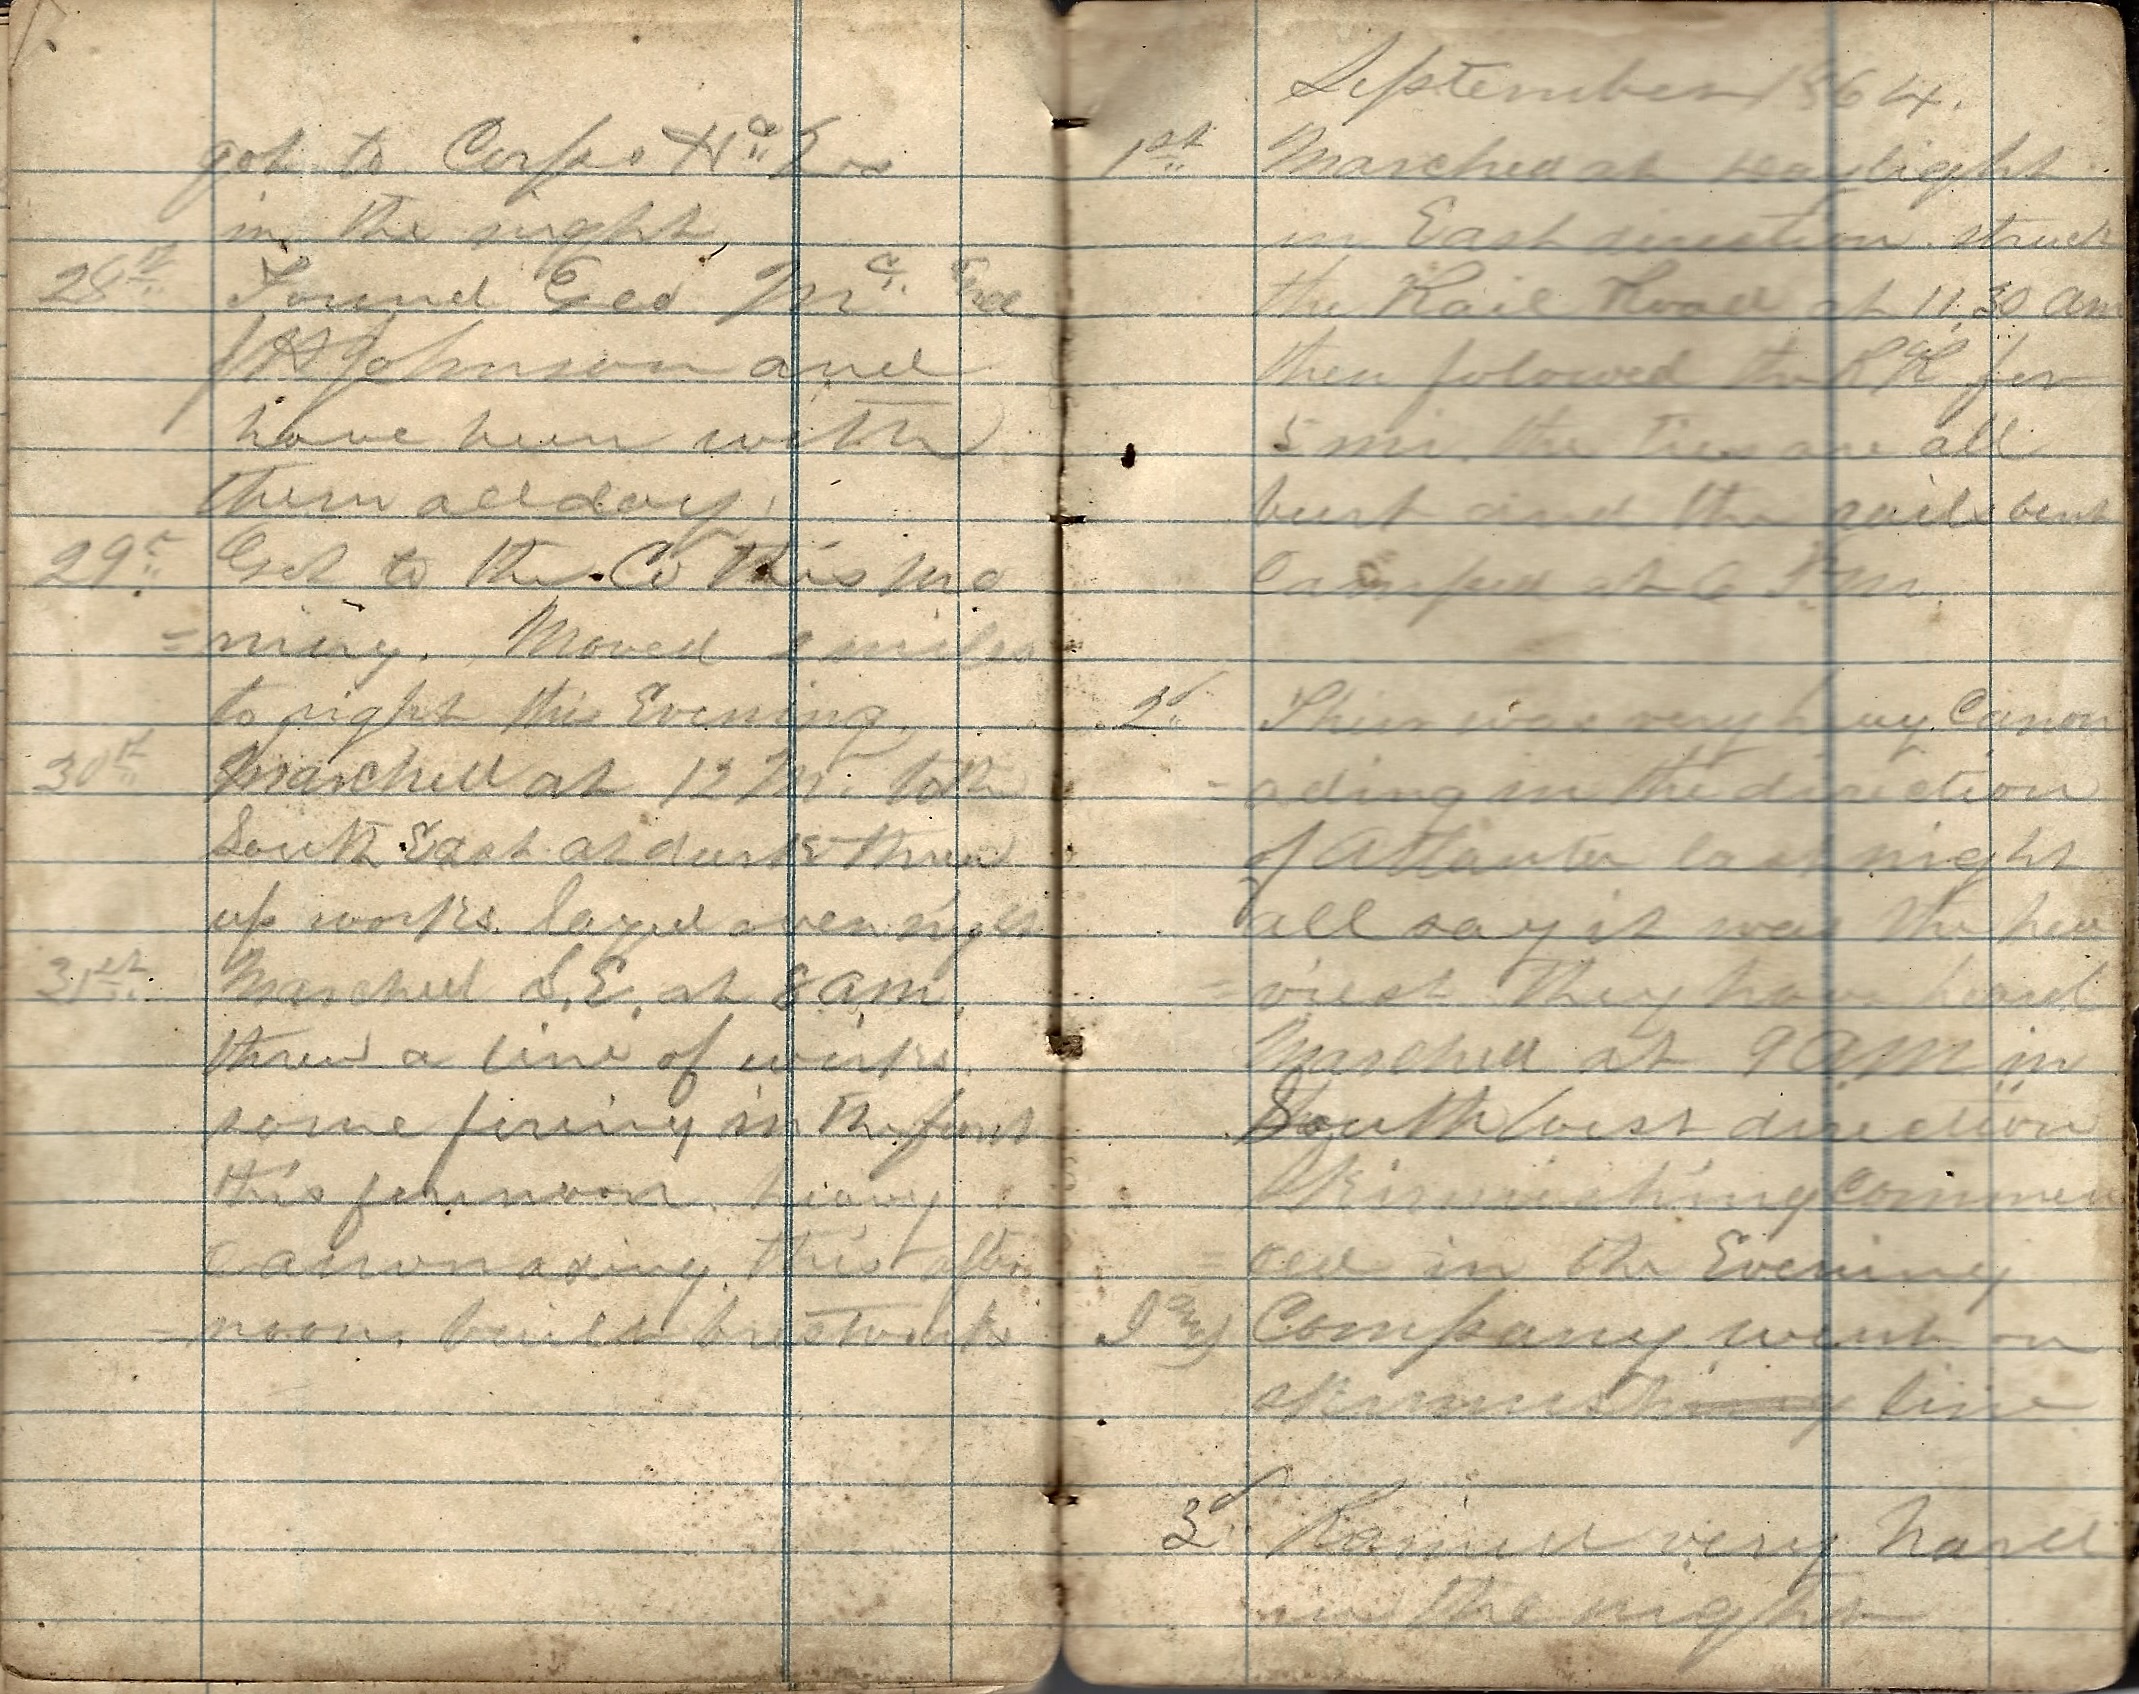 got to Corps Hd Qrs
in the night,
28th Found Geo Mc Gee
J H Johnson and
have been with
them all day.
29th Got to the Co this mo
=rning. Moved 2 miles
to right this Evening.
30th Marched at 12 M.
South East at dark threw
up works. layed over night
31st Marched S.E. at 8 am,
threw a line of works.
some fireing in the front
this forenoon. heavy
canonading this after
=noon. build brestworks
September 1864.
1st Marched at daylight
in East direction. struck
the Rail Road at 11,30 am
then folowed the R R for
5 mi. the Ties are all
burt and the rails bent
Camped at 6 P.M.
2d Their was very hevy Canon
=ading in the direction
of Atlanta last night
all say it was the hea
=viest they have heard
Marched at 9 AM in
South West direction
Skirmishing commen
=ced in the Evening
Company went on
skirmishing line
3d Rained very hard
in the night